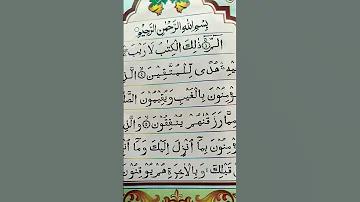 بِسْمِ اللهِ الرَّحْمٰنِ الرَّحِيْمِ
الٓمّٓ ۚ ذٰلِكَ الْكِتٰبُ لَا رَيْبَ
فِيْهِ ۚ هُدًى لِّلْمُتَّقِيْنَ ۙ
يُؤْمِنُوْنَ بِالْغَيْبِ وَيُقِيْمُوْنَ
رَزَقْنٰهُمْ يُنْفِقُوْنَ ۙ
يُؤْمِنُوْنَ بِمَآ اُنْزِلَ اِلَيْكَ وَمَآ
قَبْلِكَ ۚ وَبِالْاٰخِرَةِ هُمْ يُوْقِنُوْنَ